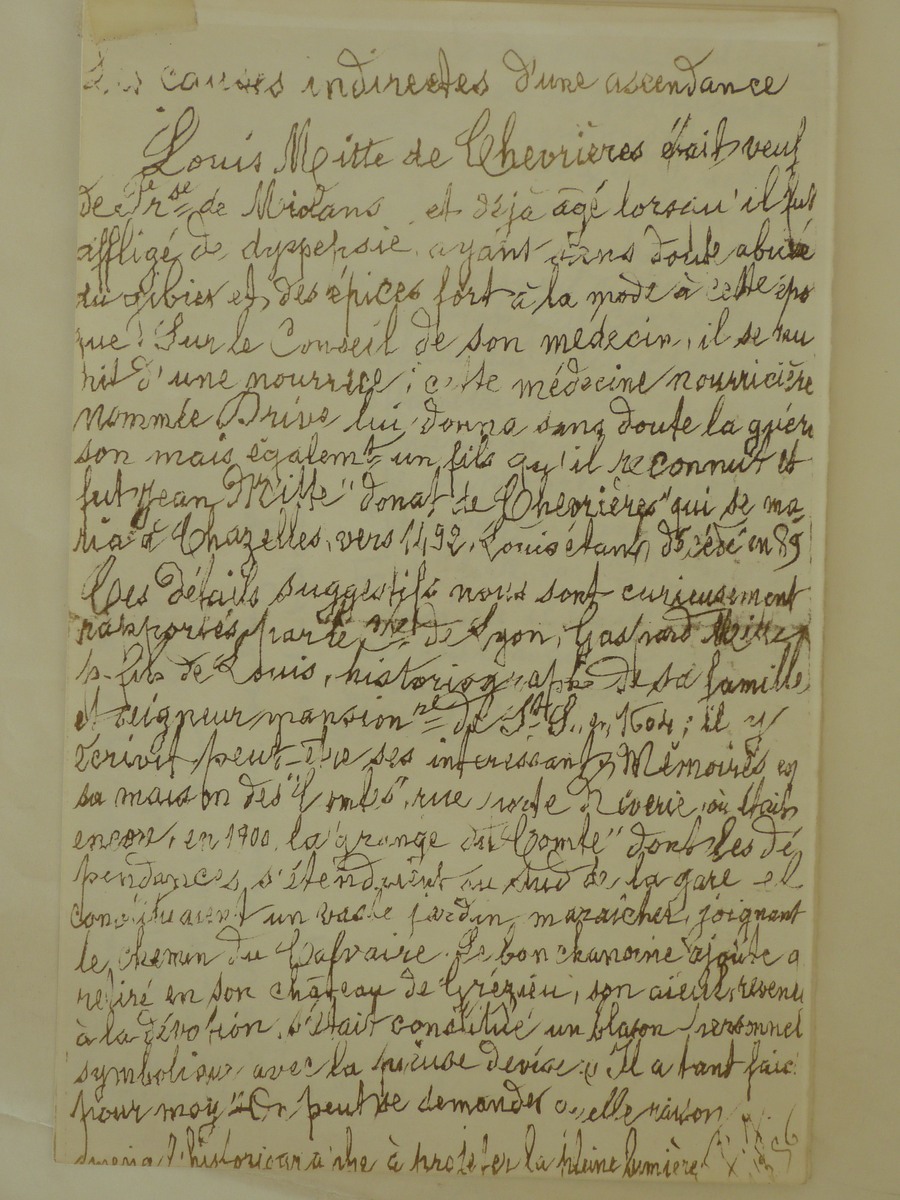 causes indirectes d'une ascendance
Louis Mitte de Chevrières était veuf
de de Miolans et déjà âgé lorsqu'il fut
affligé de dyspepsie, ayant sans doute abusé
du gibier et des épices fort à la mode à cette épo
que! Sur le Conseil de son médecin, il se mu
nit d'une nourrice; cette médecine nourricière
nommée Brive lui donna sans doute la guéri
son mais égalemt un fils qu'il reconnut et
fut Jean Mitte "donat de Chevrières" qui se ma
ria à Chazelles, vers 1492, Louis étant décédé en 89
Ces détails suggestifs nous sont curieusement
rapportés par le de Lyon, Gaspard Mitte
p. fils de Louis, historiographe de sa famille
et seigneur mansionre de St S. en 1604; il y
écrivit peut-être ses intéressants Mémoires en
sa maison des "Combes", rue porte Riverie, où était
encore, en 1900, la "grange du Comte" dont les dé
pendances s'étendaient au sud de la gare et
constituaient un vaste jardin maraîcher, joignant
le chemin du Calvaire. Le bon chanoine ajoute q
retiré en son château de Grézieu, son aïeul, revenu
à la dévotion, s'était constitué un blason personnel
symbolique avec la pieuse devise: "Il a tant faict
pour moy" On peut se demander quelle raison
l'historiographe à projeter la pleine lumière